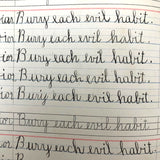 ior Bury each evil habit.
ior Bury each evil habit
ior Bury each evil habit.
ior Bury each evil habit.
ior Bury each evil habit.
ior Bury each evil habit.
ior Bury each evil habit.